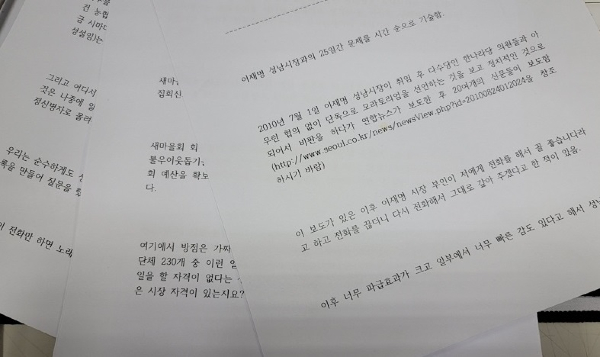 전 농협
금 시마
성설임)는
그리고 어디서
것은 나중에 일
성신병자로 몰려
우리는 순수하게도
록을 만들어 질문을
전화만 하면 노래
새마
집회신
새마을회 회
불우이웃돕기,
회 예산을 확보
다.
여기에서 방점은 가짜
단체 230개 중 이런 일
일을 할 자격이 없다는
은 시장 자격이 있는지요?
이재명 성남시장과의 25일간 문제를 시간 순으로 기술함.
2010년 7월 1일 이재명 성남시장이 취임 후 다수당인 한나라당 의원들과 아
무런 협의 없이 단독으로 모라토리엄을 선언하는 것을 보고 정치적인 것으로
되어서 비판을 하다가 연합뉴스가 보도한 후 20여개의 신문들이 보도됨
(http://www.seoul.co.kr/news/newsView.php?id=20100824012024을 참조
하시기 바람)
이 보도가 있은 이후 이재명 시장 부인이 저에게 전화를 해서 꼴 좋습니다라
고 하고 전화를 끊더니 다시 전화해서 그대로 갚아 주겠다고 한 적이 있음.
이후 너무 파급효과가 크고 일부에서 너무 빠른 감도 있다고 해서